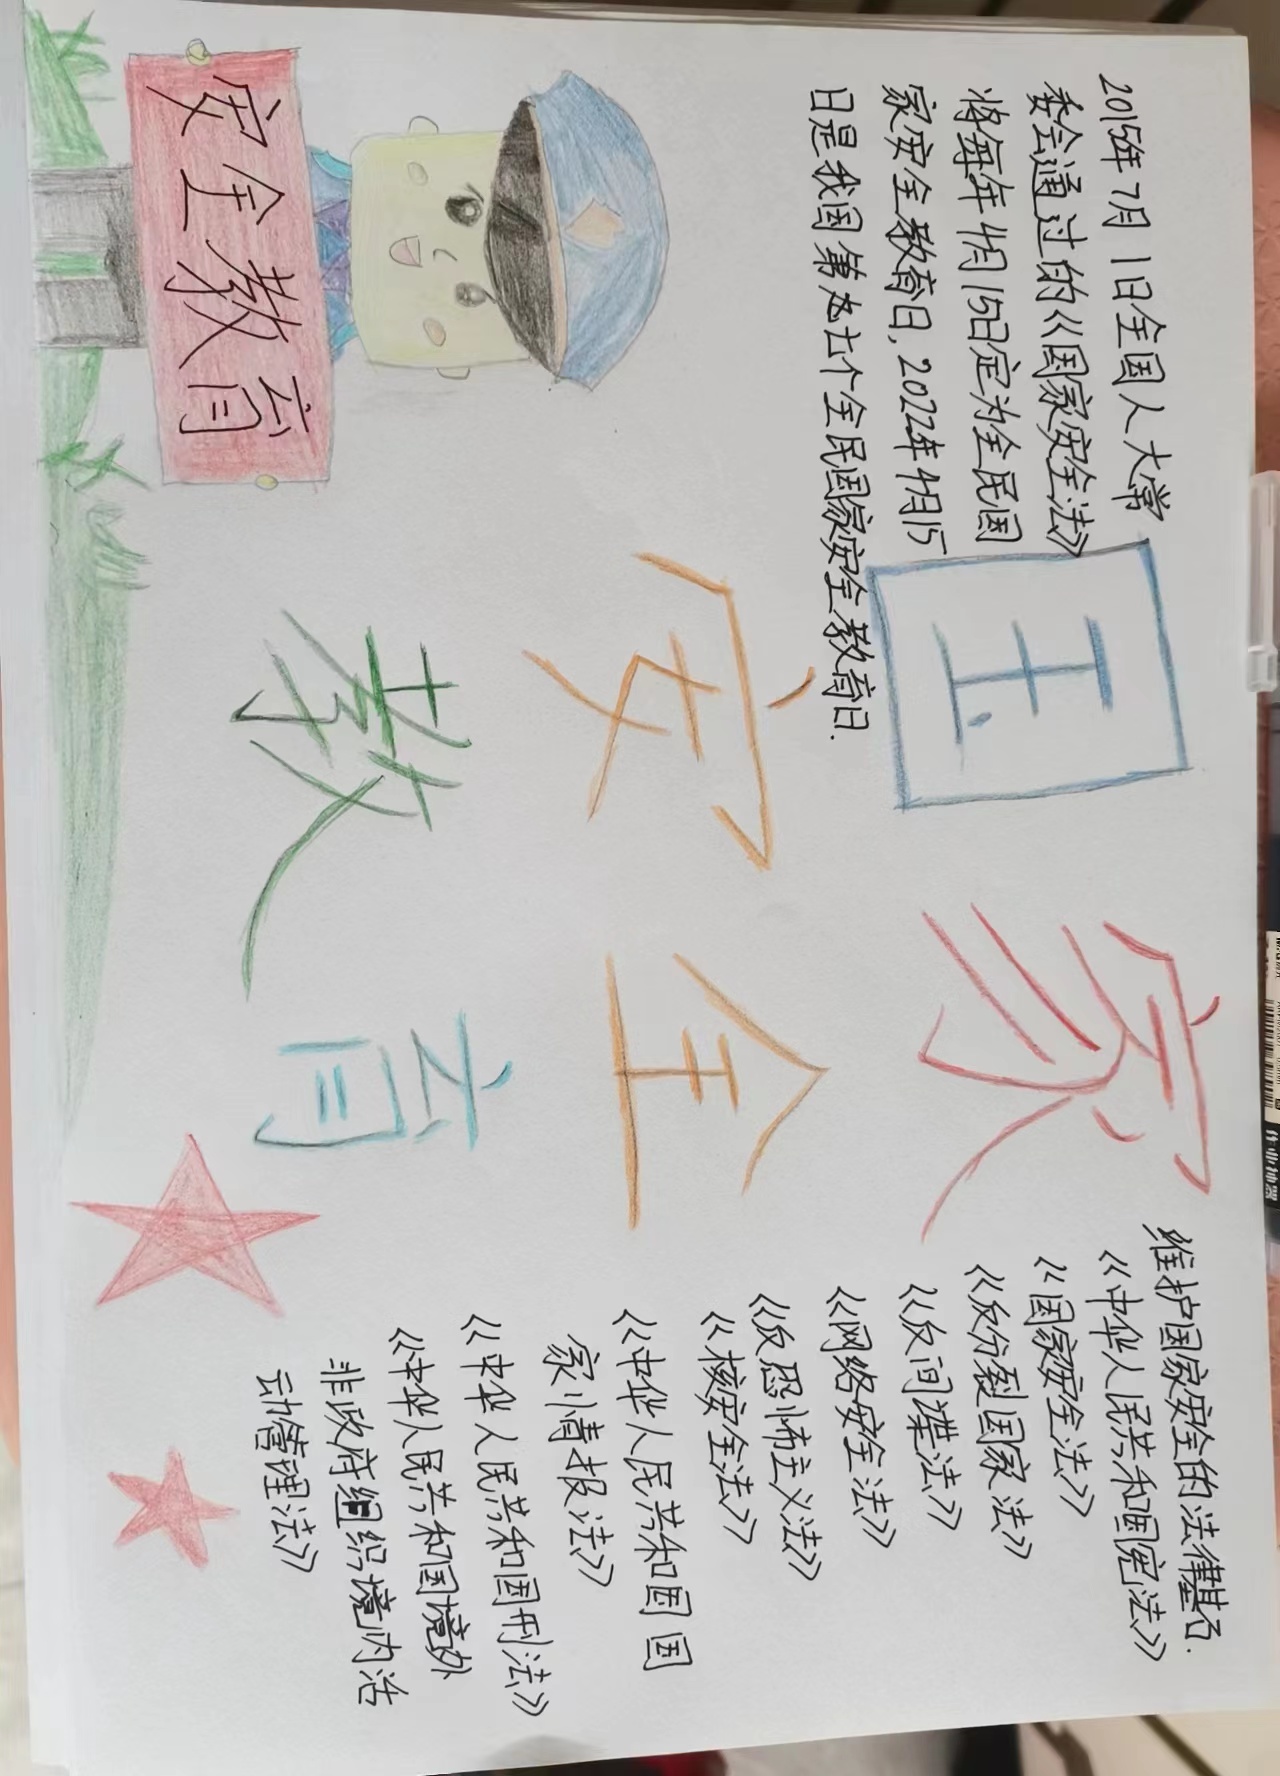 2015年7月1日全国人大常
委会通过的《国家安全法》
将每年4月15日定为全民国
家安全教育日，2022年4月15
日是我国第七个全民国家安全教育日.
国家
安全
教育
安全教育
维护国家安全的法律基石.
《中华人民共和国宪法》
《国家安全法》
《反分裂国家法》
《反间谍法》
《网络安全法》
《反恐怖主义法》
《核安全法》
《中华人民共和国国
家情报法》
《中华人民共和国刑法》
《中华人民共和国境外
非政府组织境内活
动管理法》
作业神器